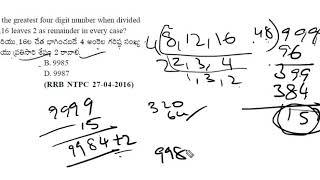 the greatest four digit number when divided
,16 leaves 2 as remainder in every case?
రియు ,16ల చేత భాగించబడే 4 అంకెల గరిష్ఠ సంఖ్య
యు ప్రతిసారి శేషం 2 రావాలి.
B. 9985
D. 9987
(RRB NTPC 27-04-2016)
4 8, 12, 16
2 2, 3, 4
1, 3, 2
48) 9999
96
399
384
15
9999
15
9984+2
320
64
998